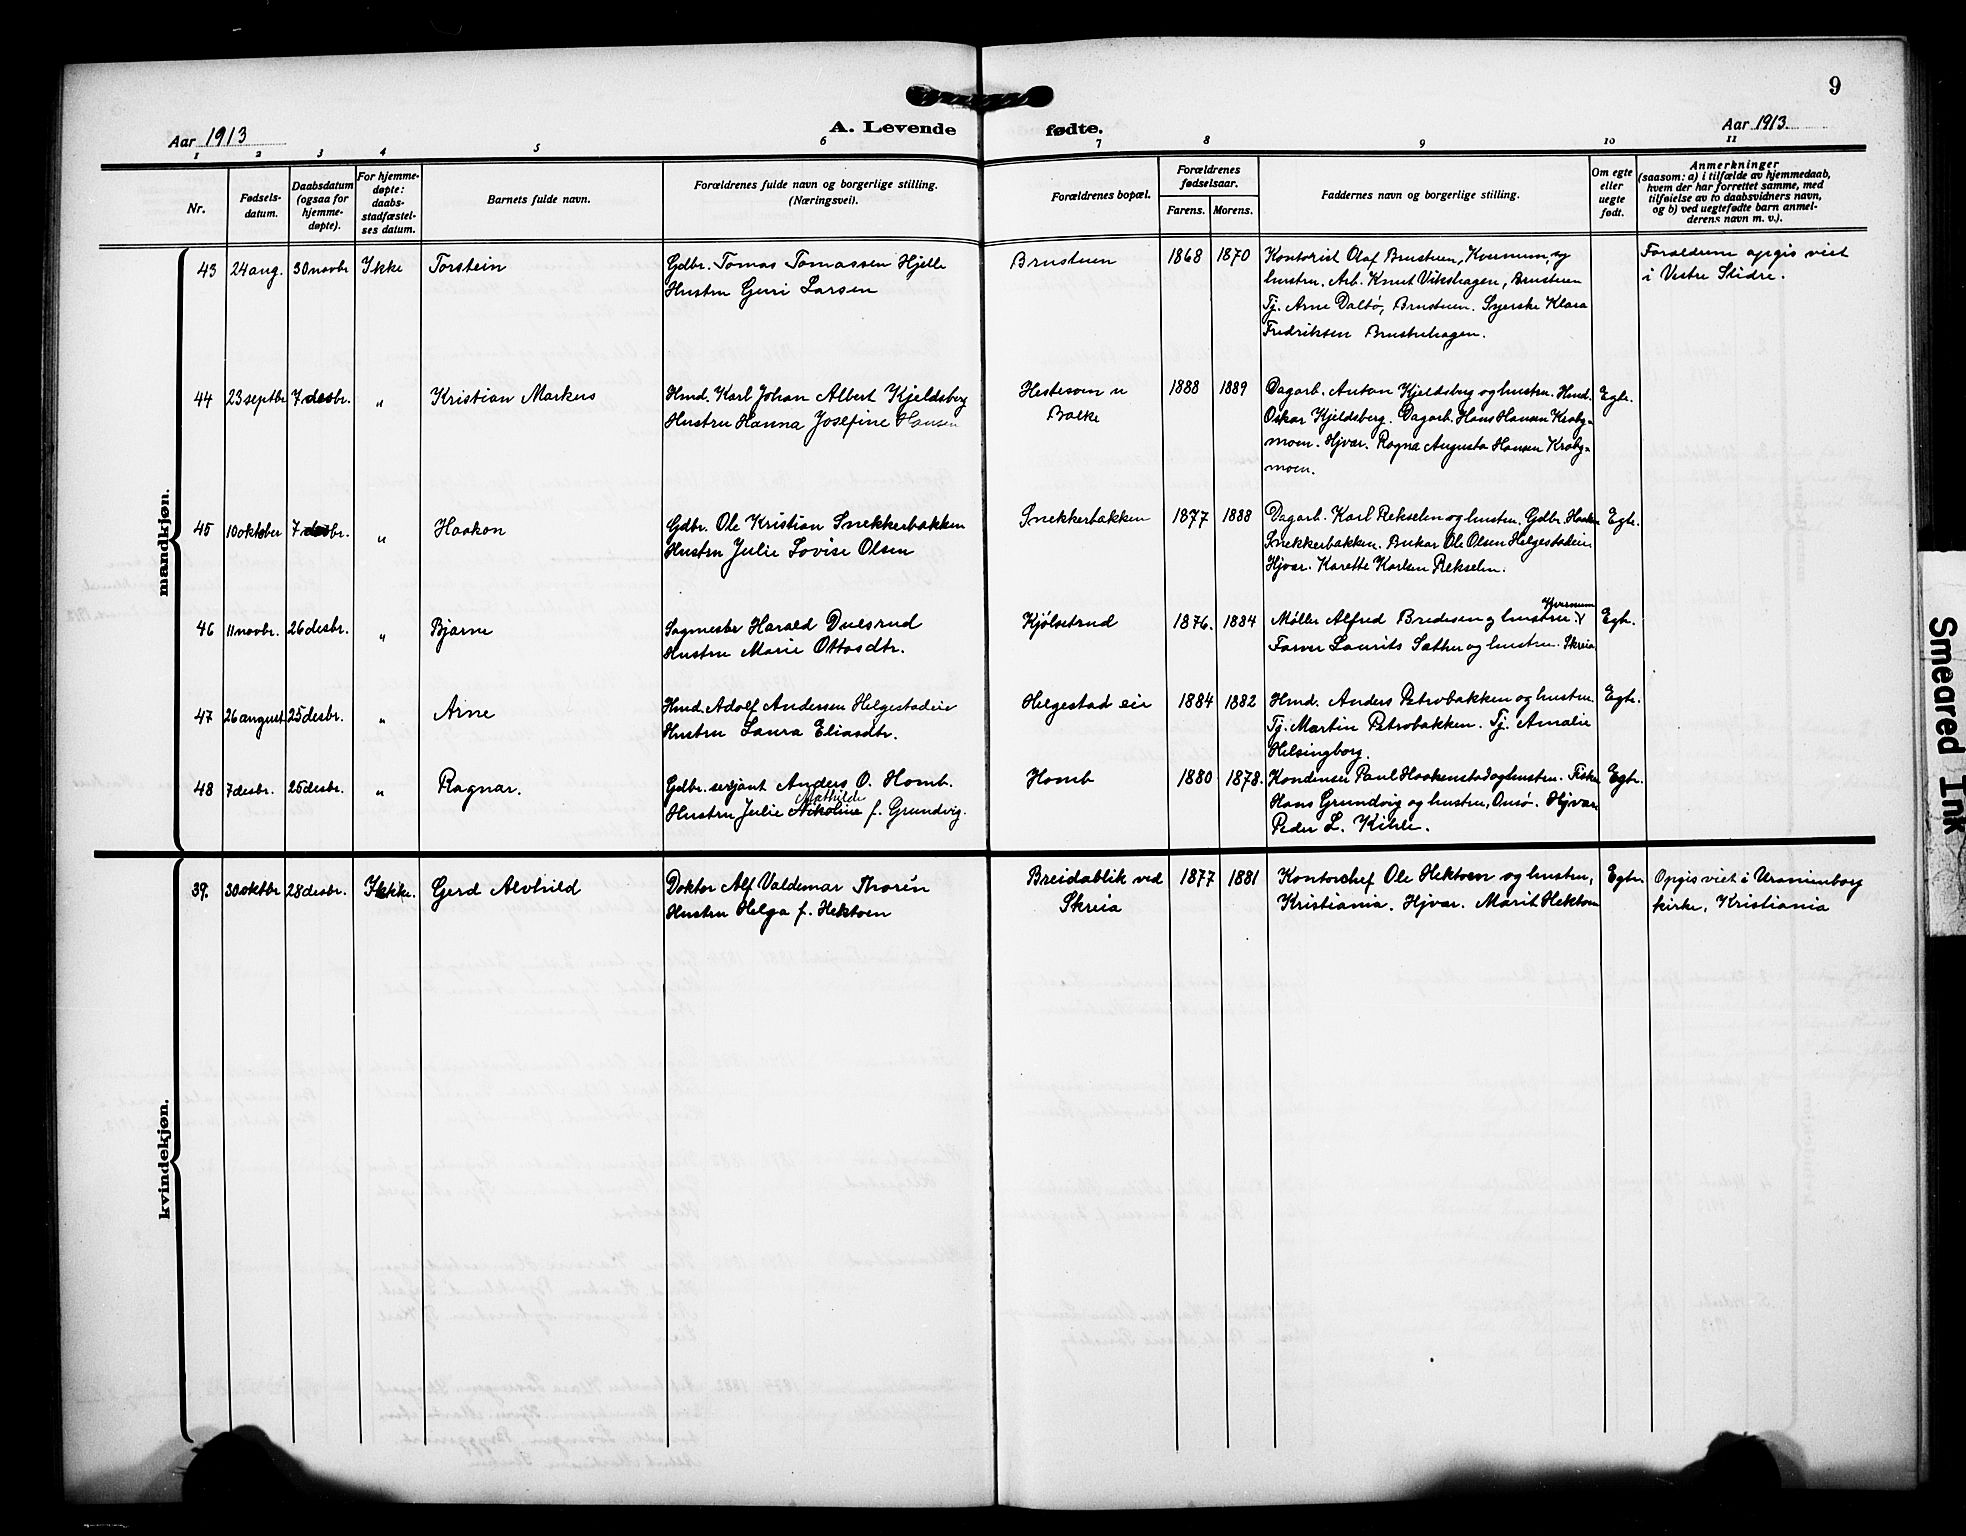 9
Aar 1913
A. Levende fødte.
Aar 1913.
1 2 3 4 5 6 7 8 9 10 11
Nr.
Fødsels-
datum.
Daabsdatum
(ogsaa for
hjemme-
døpte).
For hjemme-
døpte:
daabs-
stadfæstel-
ses datum.
Barnets fulde navn.
Forældrenes fulde navn og borgerlige stilling.
(Næringsvei).
Forældrenes bopæl.
Forældrenes
fødselsaar.
Farens. Morens.
Faddernes navn og borgerlige stilling.
Om egte
eller
uegte
født.
Anmerkninger
(saasom: a) i tilfælde av hjemmedaab,
hvem der har forrettet samme, med
tilføielse av to daabsvidners navn,
og b) ved uegtefødte barn anmel-
derens navn m. v.).
mandkjøn.
43 24 aug. 30 novbr Ikke Torstein
Gdbr. Tomas Tomassen Hjelle
Hustru Guri Larsen
Brustuen
1868 1870
Kontorist Olaf Brustuen, Kvernum, og
hustru. Arb. Knut Vikshagen, Brustuen
Tj. Arne Daltø, Brustuen. Syerske Klara
Fredriksen Brustuhagen.
Foreldrene opgis viet
i Vestre Slidre.
44 23 septbr 7 desbr. „ Kristian Markus
Hmd. Karl Johan Albert Kjeldsberg
Hustru Hanna Josefine Hansen
Hestesom u
Balke
1888 1889
Dagarb. Anton Kjeldsberg og hustru. Hmd.
Oskar Kjeldsberg. Dagarb. Hans Hansen Kraby-
moen. Hjvar. Ragna Augusta Hansen Kraby-
moen.
Egte.
45 10 oktober 7 desbr. „ Haakon
Gdbr. Ole Kristian Snekkerbakken
Hustru Julie Lovise Olsen
Snekkerbakken
1877 1888
Dagarb. Karl Rekselen og hustru. Gdbr. Haakon
Snekkerbakken. Ole Olsen Helgestadeie
Hjvar. Karette Karlsen Rekselen.
Egte.
46 11 novbr. 26 desbr. „ Bjarne
Sagmester Harald Dulsrud
Hustru Marie Ottosdtr.
Kjølsetrud
1876. 1884
Kvernum
Møller Alfred Bredesen og hustru
Farver Laurits Sæther og hustru. Skreia
Egte.
47 26 august 25 desbr. „ Arne
Hmd. Adolf Andersen Helgestadeie
Hustru Laura Eliasdtr.
Helgestad eie
1884 1882
Hmd. Anders Petrobakken og hustru.
Tj. Martin Petrobakken. Tj. Amalie
Helsingborg.
Egte.
48 7 desbr. 25 desbr. „ Ragnar.
Gdbr. serjant Anders O. Homb.
Mathilde
Hustru Julie Nikoline f. Grundvig.
Homb
1880 1878.
Kondenser Paul Haakenstad og hustru. Fisker
Hans Grundvig og hustru, Onsø. Hjvar.
Peder L. Kihle.
Egte.
kvindekjøn.
39. 30 oktbr 28 desbr. Ikke. Gerd Alvhild
Doktor Alf Valdemar Thorén
Hustru Helga f. Hektoen
Breidablik ved
Skreia
1877 1881
Kontorchef Ole Hektoen og hustru,
Kristiania. Hjvar. Marit Hektoen
Egte.
Opgis viet i Uranienborg
kirke, Kristiania
Smeared Ink